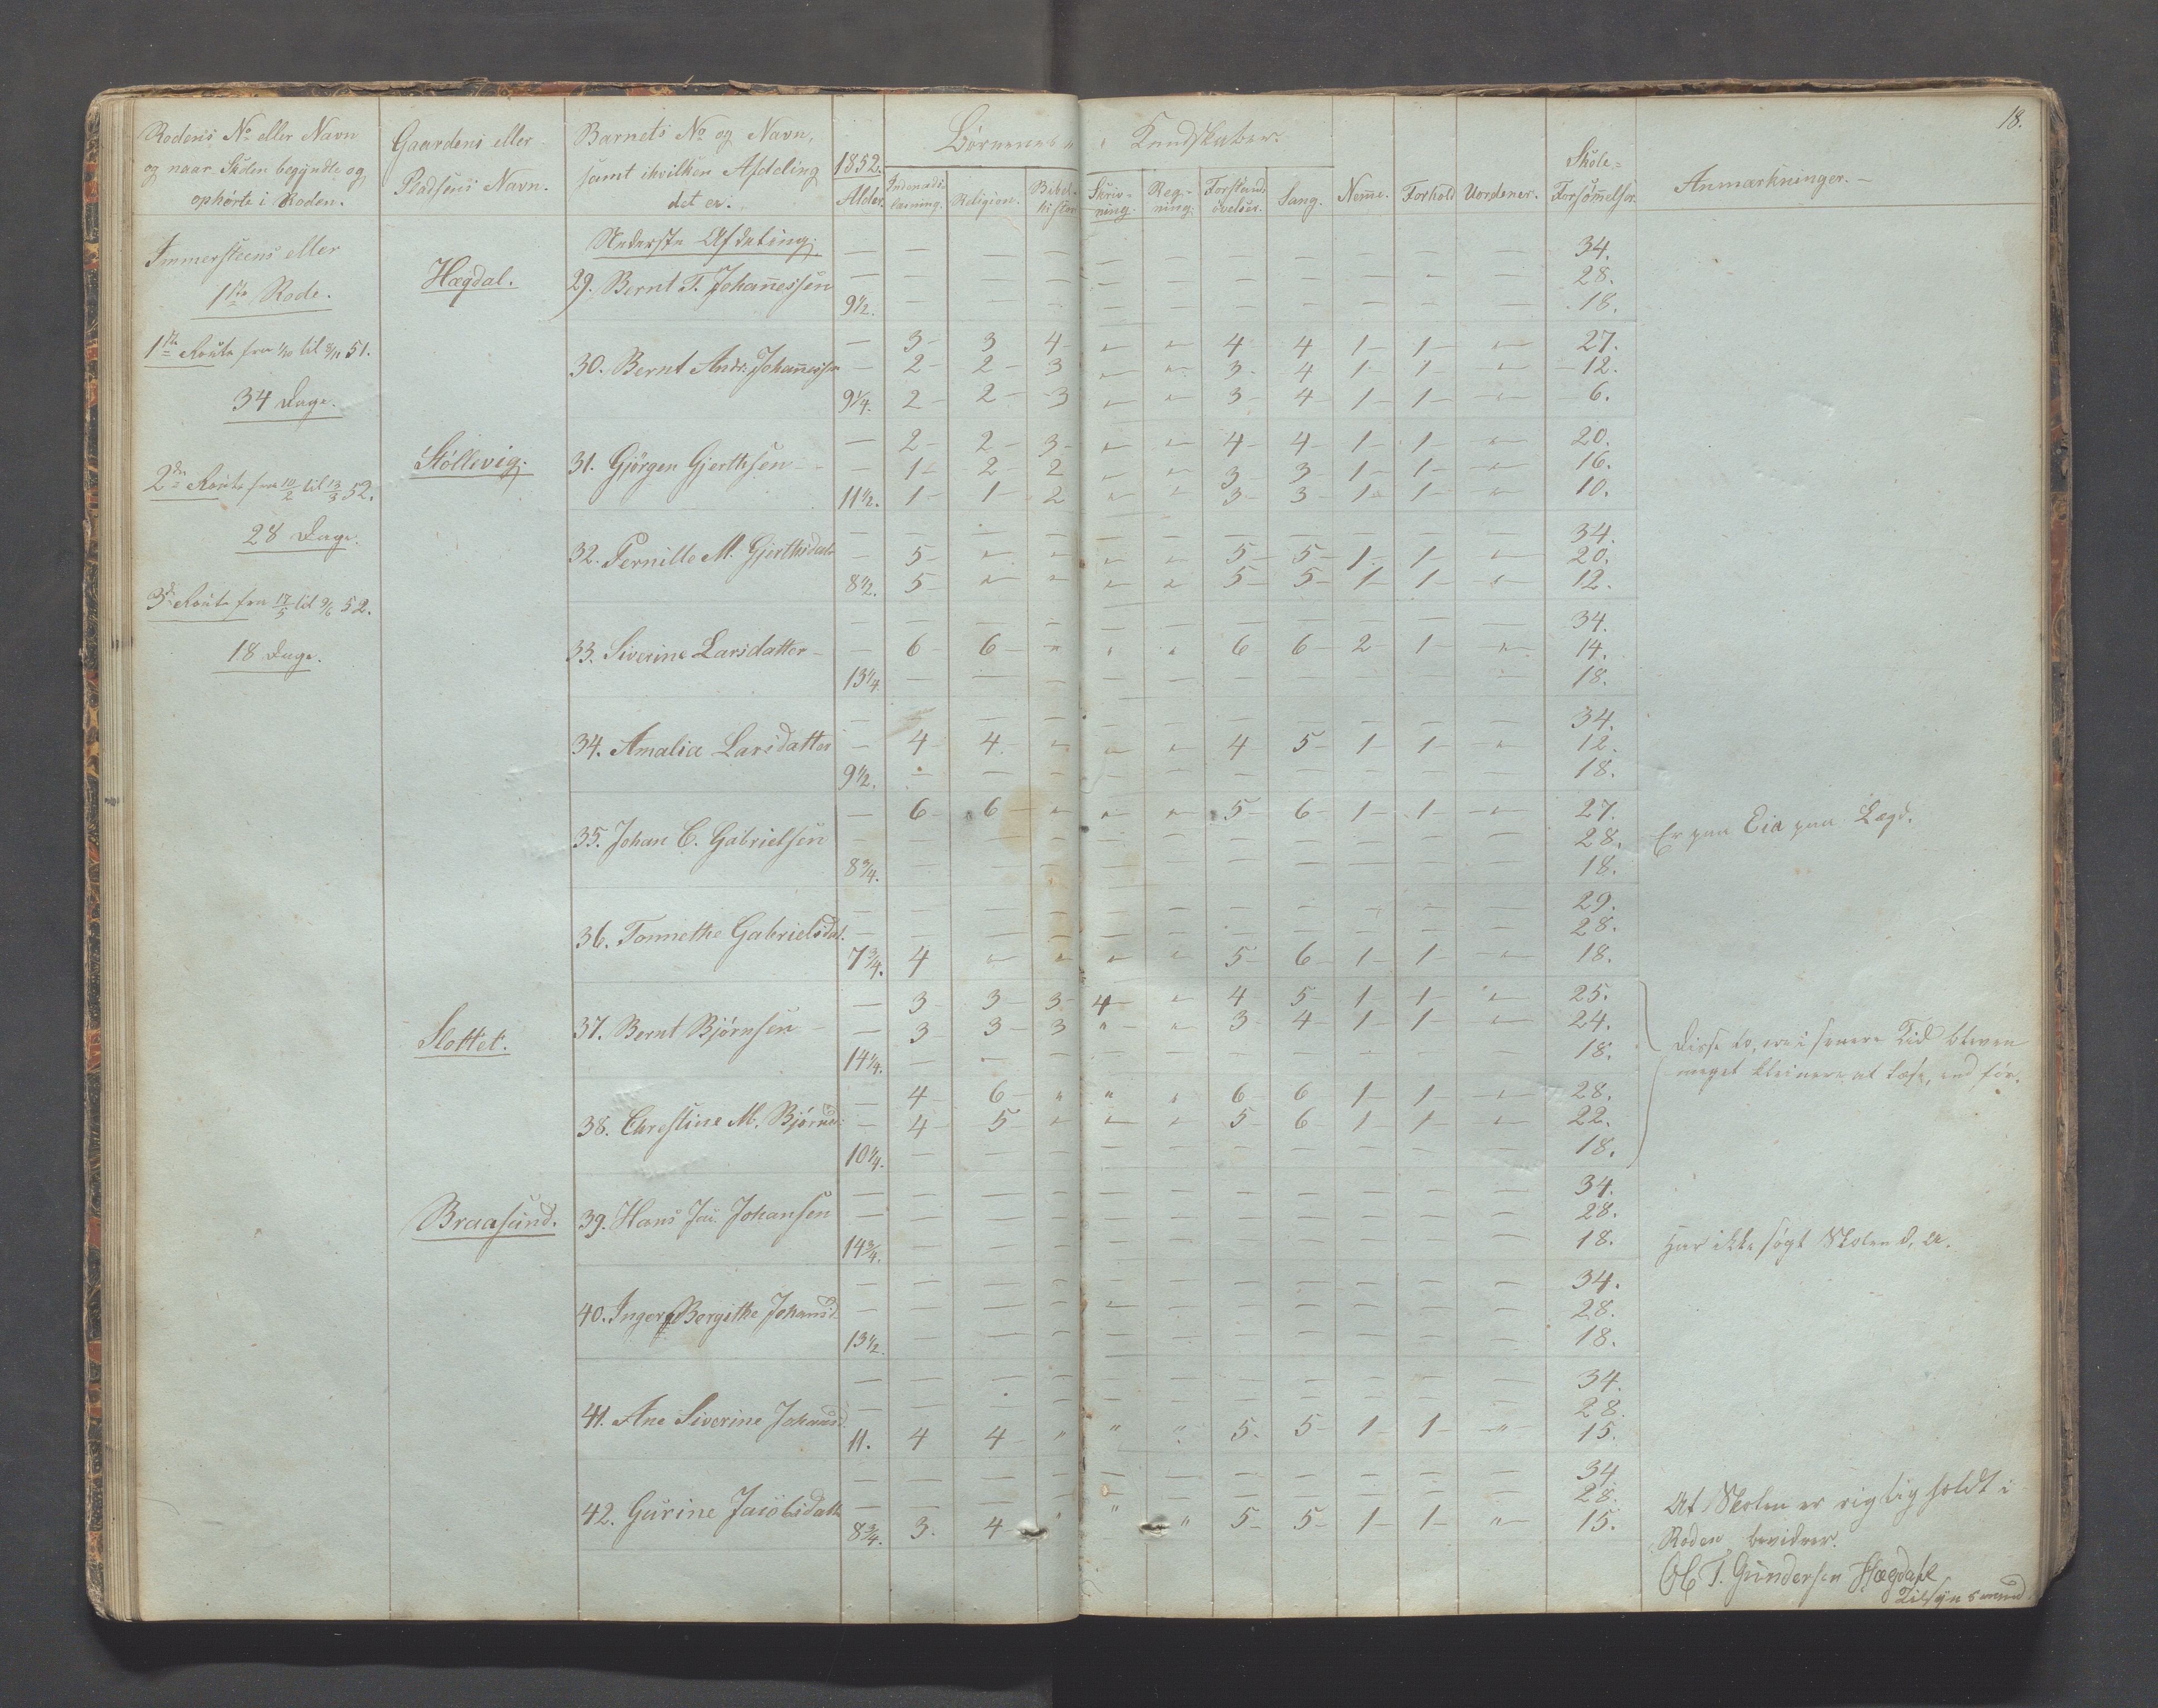 18.
Rodens No eller Navn og naar Skolen begyndte og ophørte i Roden.
Gaardens eller Pladsens Navn.
Barnets No og Navn, samt ihvilken Afdeling det er.
1852. Alder.
Børnenes Kundskaber.
Indenads læsning. Religion. Bibelhistor Skrivning. Regning. Forstandsøvelser. Sang. Nemme. Forhold Uordener. Skole=Forsømmelser. Anmærkninger.
Immersteens eller
1ste Rode.
1ste Route fra 1/10 til 8/11 51.
34 Dage.
2den Route fra 10/2 til 13/3 52.
28 Dage.
3de Route fra 17/5 til 9/6 52.
18 Dage.
Nederste Afdeling.
— — — — — — — — — — — 34.
Hægdal. 29. Bernt T. Johannessen — — — — — — — — — — — 28.
9 1/2. — — — — — — — — — — 18.
— 3 3 4 " " 4 4 1 1 " 27.
30. Bernt Andr. Johannessen — 2 2 3 " " 3 4 1 1 " 12.
9 1/4. 2 2 3 " " 3 4 1 1 " 6.
— 2 2 3 " " 4 4 1 1 " 20.
Støllevig. 31. Gjørgen Gjerthsen — 1 2 2 " " 3 3 1 1 " 16.
11 1/2. 1 1 2 " " 3 3 1 1 " 10.
— — — — — — — — — — — 34.
32. Pernille M. Gjerthsdat. — 5 " " " " 5 5 1 1 " 20.
8 1/2. 5 " " " " 5 5 1 1 " 12.
— — — — — — — — — — — 34.
33. Siverine Larsdatter — 6 6 " " " 6 6 2 1 " 14.
13 1/4 — — — — — — — — — — 18.
— — — — — — — — — — — 34.
34. Amalia Larsdatter — 4 4 " " " 4 5 1 1 " 12.
9 1/2. — — — — — — — — — — 18.
— 6 6 " " " 5 6 1 1 " 27.
35. Johan C. Gabrielsen — — — — — — — — — — — 28. Er paa Eia paa Lægd.
8 3/4. — — — — — — — — — — 18.
— — — — — — — — — — — 29.
36. Tonnethe Gabrielsdat. — — — — — — — — — — — 28.
7 3/4. 4 " " " " 5 6 1 1 " 18.
— 3 3 3 4 " 4 5 1 1 " 25.
Slottet. 37. Bernt Bjørnsen — 3 3 3 " " 3 4 1 1 " 24.
14 1/4. — — — — — — — — — — 18.
Disse to, ere i senere Tid bleven
meget kleinere at læse, end før.
— 4 6 " " " 6 6 1 1 " 28.
38. Chrestine M. Bjørnsd. — 4 5 " " " 5 6 1 1 " 22.
10 1/4. — — — — — — — — — — 18.
— — — — — — — — — — — 34.
Braasund. 39. Hans Jac. Johansen — — — — — — — — — — — 28.
14 3/4. — — — — — — — — — — 18. Har ikke søgt Skolen d. A.
— — — — — — — — — — — 34.
40. Inger Bergithe Johansd. — — — — — — — — — — 28.
13 1/2. — — — — — — — — — — 18.
— — — — — — — — — — — 34.
41. Ane Siverine Johansd. — — — — — — — — — — — 28.
11. 4 4 " " " 5 5 1 1 " 15.
— — — — — — — — — — — 34
42. Gurine Jacobsdatt. — — — — — — — — — — — 28.
8 3/4. 3 4 " " " 5 5 1 1 " 15.
At Skolen er rigtig holdt i
Roden bevidner.
T. Gundersen Hægdahl
Tilsynsmand